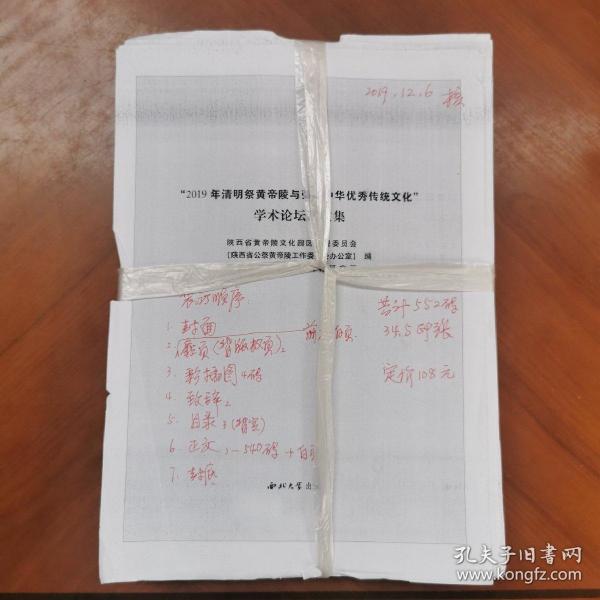 2019.12.6
"2019年清明祭黄帝陵与 中华优秀传统文化"
学术论坛 集
陕西省黄帝陵文化园区 委员会
[陕西省公祭黄帝陵工作委 办公室] 编
装订顺序
共计552码
1. 封面
34.5印张
2. 扉页(背版权页)2
3. 彩插图4码
定价108元
4. 致辞2
5. 目录3(背空)
6. 正文 1-540码+白
7. 封底
西北大学出
孔夫子旧书网
www.kongfz.com